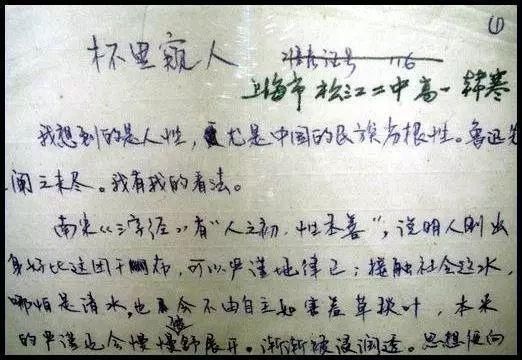 ①
杯里窥人
准考证号 116
上海市松江二中高一 韩寒
我想到的是人性,尤是中国的民族劣根性。鲁迅先
阐之未尽。我有我的看法。
南宋《三字经》有“人之初,性本善”,说明人刚出
身好比这团干布,可以严谨地律己;接触社会这水,
哪怕是清水,也会不由自主如害羞草埉叶,本来
的严谨也会慢慢地舒展开,渐渐被浸润透。思想便向